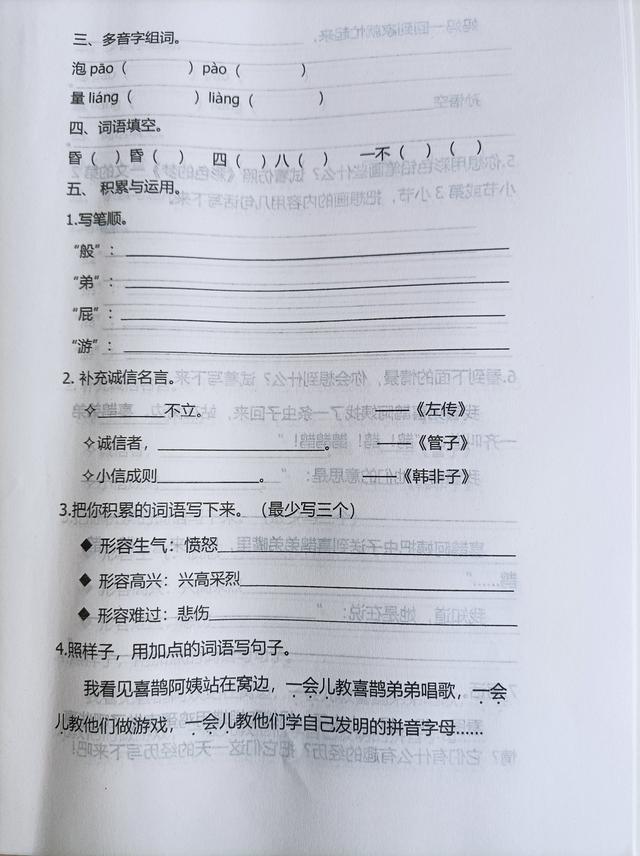 三、多音字组词。
泡 pāo（ ）pào（ ）
量 liáng（ ）liàng（ ）
四、词语填空。
昏（ ）昏（ ） 四（ ）八（ ） 一不（ ）（ ）
五、积累与运用。
1.写笔顺。
“般”：
“弟”：
“屁”：
“游”：
2. 补充诚信名言。
✧________不立。 ——《左传》
✧诚信者，________________。 ——《管子》
✧小信成则____________。 ——《韩非子》
3.把你积累的词语写下来。（最少写三个）
◆ 形容生气：愤怒
◆ 形容高兴：兴高采烈
◆ 形容难过：悲伤
4.照样子，用加点的词语写句子。
我看见喜鹊阿姨站在窝边，一会儿教喜鹊弟弟唱歌，一会
儿教他们做游戏，一会儿教他们学自己发明的拼音字母……